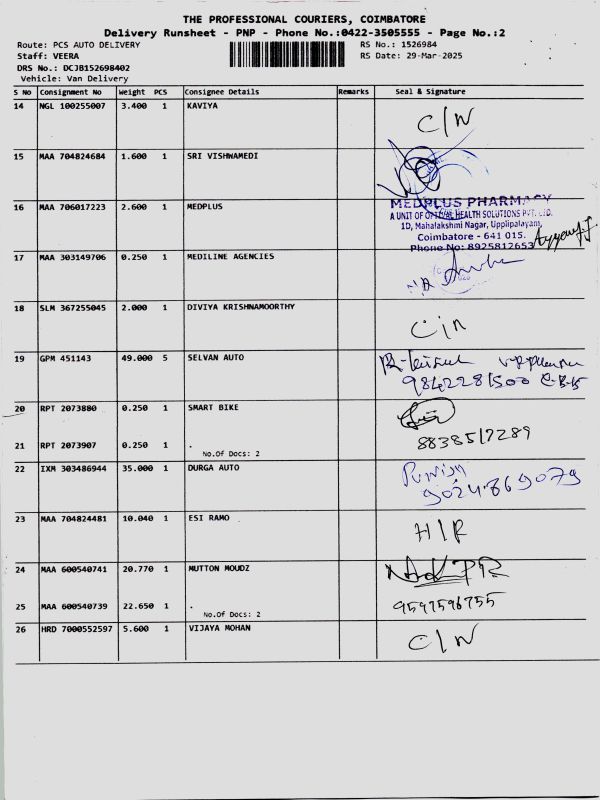 THE PROFESSIONAL COURIERS, COIMBATORE
Delivery Runsheet - PNP - Phone No.:0422-3505555 - Page No.:2
Route: PCS AUTO DELIVERY RS No.: 1526984
Staff: VEERA RS Date: 29-Mar-2025
DRS No.: DCJB152698402
Vehicle: Van Delivery
S No Consignment No Weight PCS Consignee Details Remarks Seal & Signature
14 NGL 100255007 3.400 1 KAVIYA
C/N
15 MAA 704824684 1.600 1 SRI VISHWAMEDI
16 MAA 706017223 2.600 1 MEDPLUS
MEDPLUS PHARMACY
A UNIT OF OPTICAL HEALTH SOLUTIONS PVT. LTD.
1D, Mahalakshmi Nagar, Upplipalayam,
Coimbatore - 641 015.
Phone No: 8925812653
17 MAA 303149706 0.250 1 MEDILINE AGENCIES
18 SLM 367255045 2.000 1 DIVIYA KRISHNAMOORTHY
C/n
19 GPM 451143 49.000 5 SELVAN AUTO
9842281500
20 RPT 2073880 0.250 1 SMART BIKE
21 RPT 2073907 0.250 1 .
8838517289
No.Of Docs: 2
22 IXM 303486944 35.000 1 DURGA AUTO
9024869079
23 MAA 704824481 10.040 1 ESI RAMO
H/R
24 MAA 600540741 20.770 1 MUTTON MOUDZ
25 MAA 600540739 22.650 1 .
9597596755
No.Of Docs: 2
26 HRD 7000552597 5.600 1 VIJAYA MOHAN
C/N